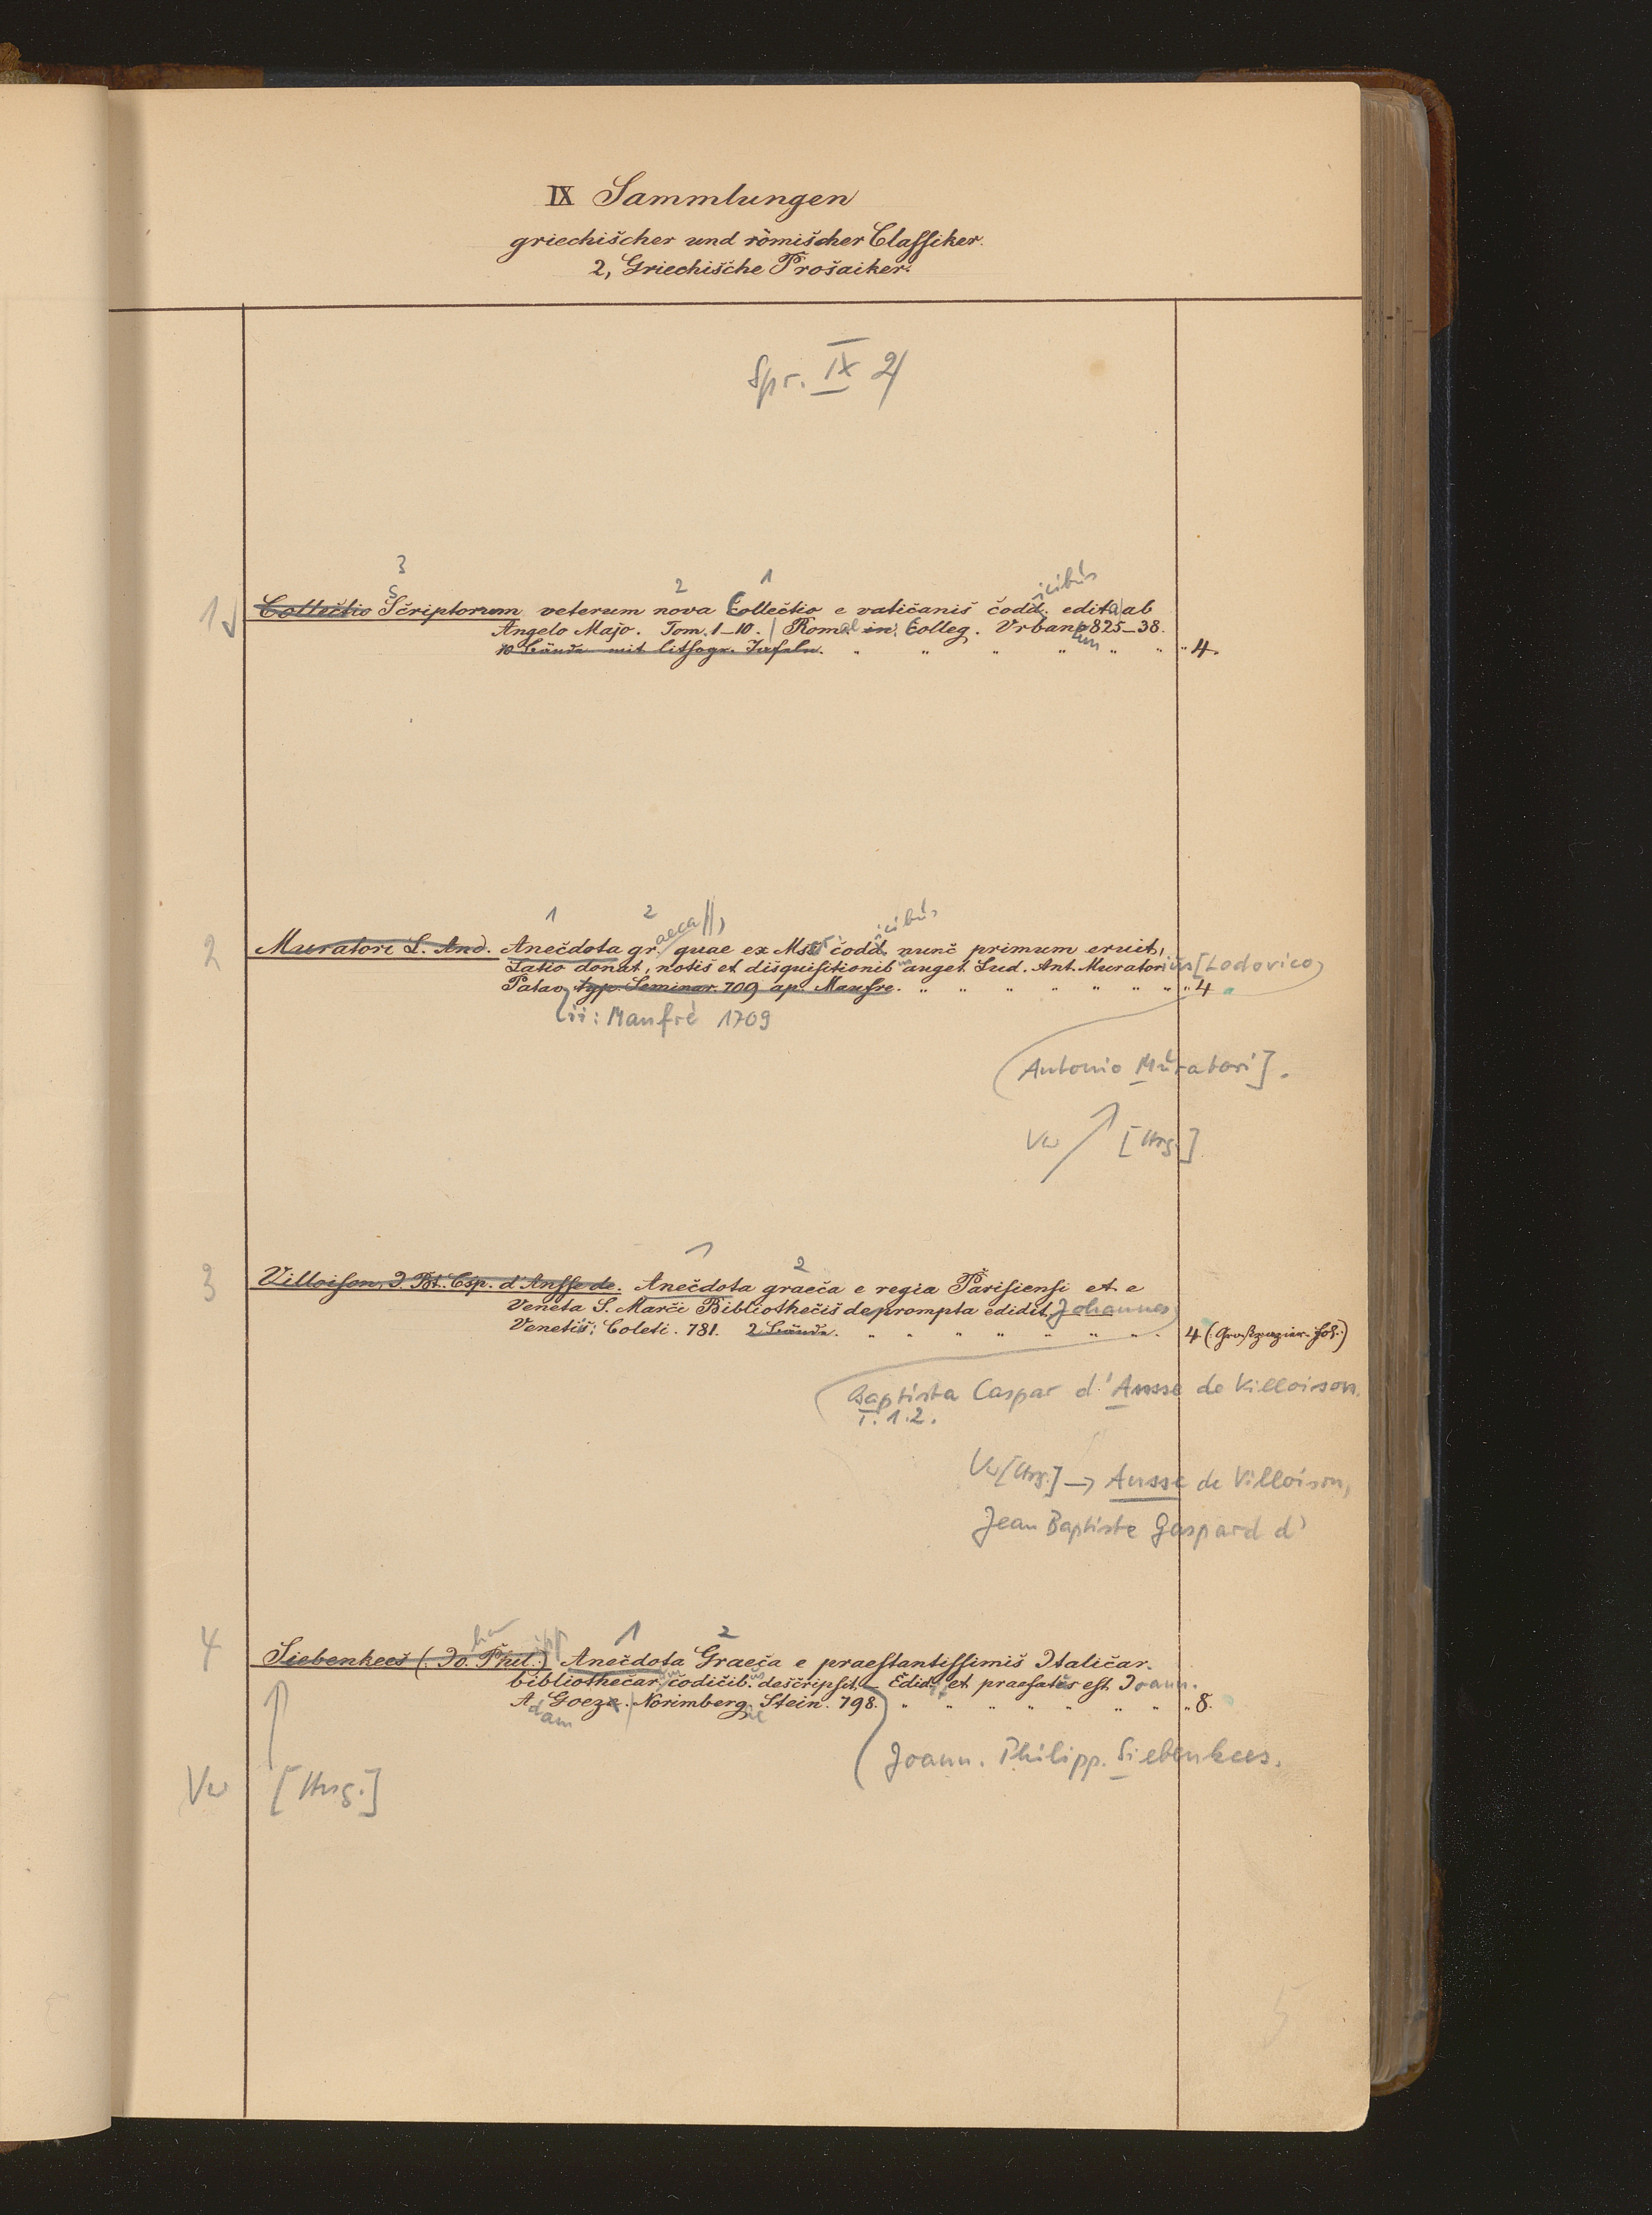 IX Sammlungen
griechischer und römischer Classiker.
2, Griechische Prosaiker.
Spr. IX 2/
3
2 1
icibus
1 Collectio Scriptorum veterum nova Collectio e vaticanis codd. edita ab
Angelo Majo. Tom. 1–10. | Romae in: Colleg. Urban. 825–38.
um
10 Bände mit lithogr. Tafeln. 4.
1 2
aeca icibus
2 Muratori L. And. Anecdota gr. quae ex Mss. codd. nunc primum eruit,
Latio donat, notis et disquisitionib us auget Lud. Ant. Muratorius [Lodovico
Patav. typ. Seminar. 709 ap. Manfre. 4
ii: Manfrè 1709
Antonio Muratori].
Vw [Hrsg.]
1 2
3 Villoison, J. Bt. Csp. d'Ansse de. Anecdota graeca e regia Parisiensi et e
Veneta S. Marci Bibliothecis deprompta edidit Johannes
Venetiis: Coleti. 781. 2 Bände. 4 (: Großpapier. Fol.:)
Baptista Caspar d'Ansse de Villoison.
T. 1.2.
Vw [Hrsg.] → Ansse de Villoison,
Jean Baptiste Gaspard d'
1 2
ipp
4 Siebenkees (: Jo. Phil.:) Anecdota Graeca e praestantissimis Italicar.
um us
bibliothecar. codicib. descripsit – Edidit et praefatus est Joann.
Adam Goez. | Norimbergae Stein. 798. 8.
Joann. Philipp. Siebenkees.
Vw [Hrsg.]
5